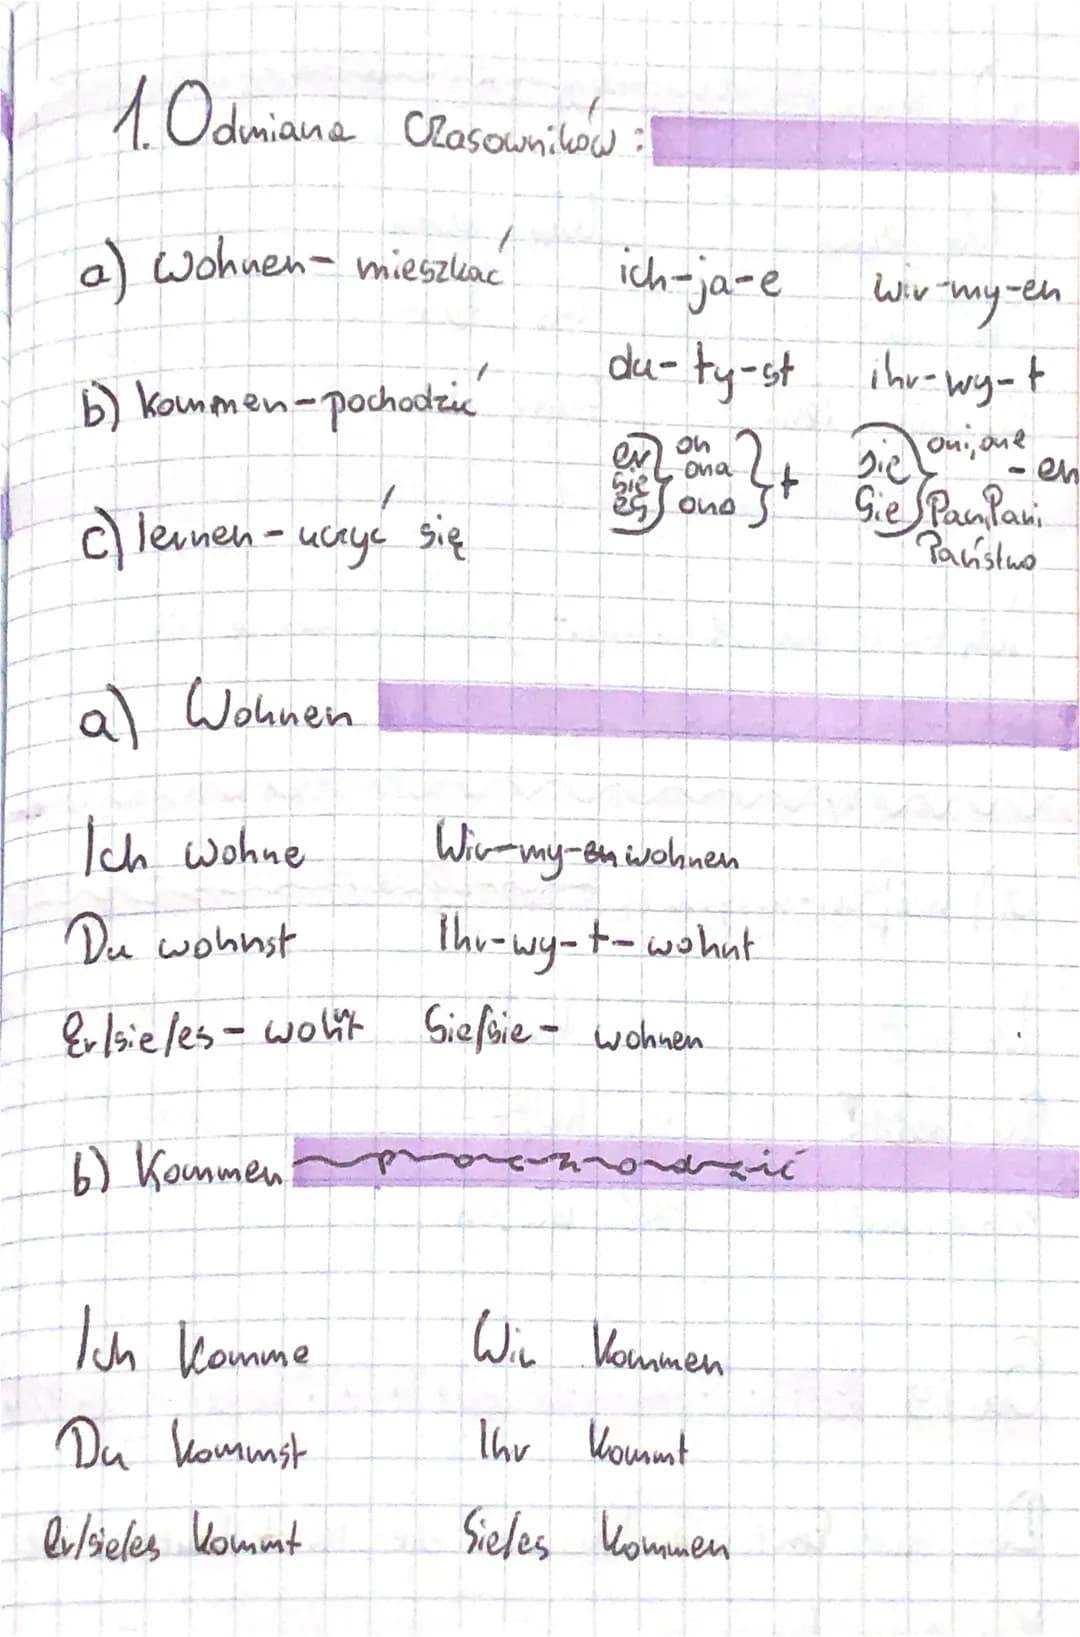 1. Odmiana Czasowników:
a) wohnen - mieszkać
ich-ja-e
wir-my-en
b) kommen - pochodzić
du-ty-st
ihr-wy-t
er sie es } on ona ono } t
sie Sie } oni, one - en
Pan, Pani,
Państwo
c) lernen - uczyć się
a) Wohnen
Ich wohne
Wir-my-en wohnen
Du wohnst
Ihr-wy-t-wohnt
Er/sie/es - wohnt
Sie/sie - wohnen
b) Kommen
Ich komme
Wir kommen
Du kommst
Ihr kommt
Er/sie/es kommt
Sie/es kommen